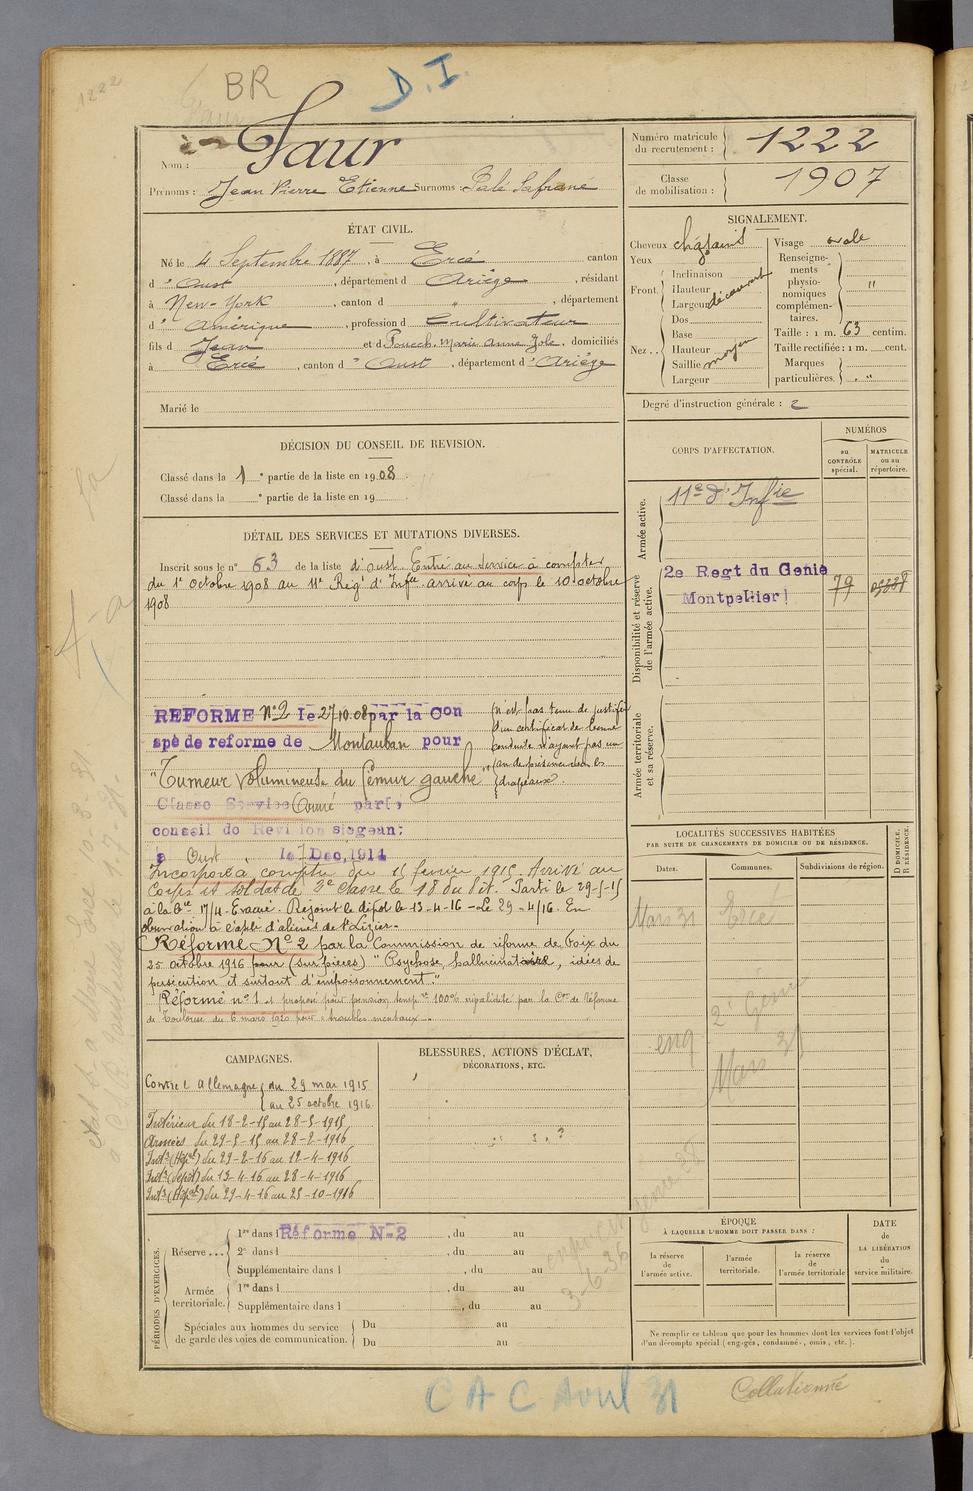 1222
BR
D.I.
Nom : Faur
Prénoms : Jean Pierre Etienne Surnoms : Palé Safrané
Numéro matricule du recrutement : 1222
Classe de mobilisation : 1907
ÉTAT CIVIL.
Né le 4 Septembre 1887, à Ercé canton
d'Oust, département d Ariège, résidant
à New-York, canton d " , département
d' Amérique, profession d Cultivateur
fils d Jean et d Pouech, Marie Anne Jole, domiciliés
à Ercé, canton d' Oust, département d' Ariège
Marié le
SIGNALEMENT.
Cheveux chatains
Yeux
Front. Inclinaison
Hauteur
Largeur découvert
Nez .. Dos
Base
Hauteur
Saillie moyen
Largeur
Visage ovale
Renseignements physionomiques complémentaires. "
Taille : 1 m. 63 centim.
Taille rectifiée : 1 m. cent.
Marques particulières. "
Degré d'instruction générale : 2
DÉCISION DU CONSEIL DE REVISION.
Classé dans la 1e partie de la liste en 1908.
Classé dans la e partie de la liste en 19 .
CORPS D'AFFECTATION.
NUMÉROS
au CONTRÔLE spécial.
MATRICULE ou au répertoire.
Armée active.
11e d'Infie
Disponibilité et réserve de l'armée active.
2e Regt du Genie
Montpellier 79
Armée territoriale et sa réserve.
DÉTAIL DES SERVICES ET MUTATIONS DIVERSES.
Inscrit sous le n° 63 de la liste d'oust. Entré au service à compter
du 1er Octobre 1908 au 11e Régt d'Infie. arrivé au corps le 10 octobre
1908
REFORME N°2 le 27.10.08 par la Con
spé de reforme de Montauban pour
"Tumeur volumineuse du fémur gauche"
n'est pas tenu de justifier
d'un certificat de bonne
conduite n'ayant pas un
an de présence sous les
drapeaux.
Classé Service Armé par le
conseil de Revision siegeant
à Oust le 7 Dec. 1914
Incorporé à compter du 15 février 1915. Arrivé au
Corps et soldat de 2e classe le 18 du dit. Parti le 29-5-15
à la Cie 17/4. Evacué. Rejoint le dépôt le 13-4-16 - Le 29-4/16. En
observation à l'asile d'aliénés de St Lizier.
Réformé N° 2 par la Commission de réforme de Foix du
25 octobre 1916 pour (sur pièces) "Psychose hallucinatoire, idées de
persécution et surtout d'empoisonnement."
Réformé n° 1 et proposé pour pension temp. 100% invalidité par la Con de réforme
de Toulouse du 6 mars 1920 pour : troubles mentaux.
LOCALITÉS SUCCESSIVES HABITÉES
PAR SUITE DE CHANGEMENTS DE DOMICILE OU DE RÉSIDENCE.
Dates. Communes. Subdivisions de région. D DOMICILE, R RÉSIDENCE.
Mars 31 Ercé
2e Génie
eng Mars 31
CAMPAGNES.
Contre l'Allemagne du 29 mai 1915
au 25 octobre 1916
Intérieur du 18-2-15 au 28-5-1915
Armées du 29-5-15 au 28-2-1916
Intr (Hôpal) du 29-2-16 au 12-4-1916
Intr (dépôt) du 13-4-16 au 28-4-1916
Intr (Hôpal) du 29-4-16 au 25-10-1916
BLESSURES, ACTIONS D'ÉCLAT,
DÉCORATIONS, ETC.
PÉRIODES D'EXERCICES.
Réserve ... 1re dans l Réforme N-2 , du au
2e dans l , du au
Supplémentaire dans l , du au
Armée territoriale. 1re dans l , du au
Supplémentaire dans l , du au
Spéciales aux hommes du service de garde des voies de communication. Du au
Du au
3-6-36
ÉPOQUE
À LAQUELLE L'HOMME DOIT PASSER DANS :
la réserve de l'armée active.
l'armée territoriale.
la réserve de l'armée territoriale
DATE de LA LIBÉRATION du service militaire.
Ne remplir ce tableau que pour les hommes dont les services font l'objet
d'un décompte spécial (engagés, condamnés, omis, etc.).
CAC Avril 31
Collationné